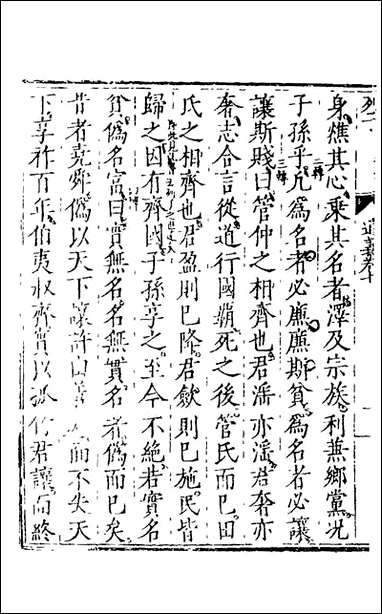 身燋其心乘其名者澤及宗族利兼鄉黨況
子孫乎凡爲名者必廉廉斯貧爲名者必讓
讓斯賤曰管仲之相齊也君淫亦淫君奢亦
奢志合言從道行國霸死之後管氏而已田
氏之相齊也君盈則己降君歛則己施民皆
歸之因有齊國子孫享之至今不絕若實名
貧僞名富曰實無名名無實名者僞而已矣
昔者堯舜僞以天下讓許由善 而不失天
下享祚百年伯夷叔齊實以孤竹君讓而終